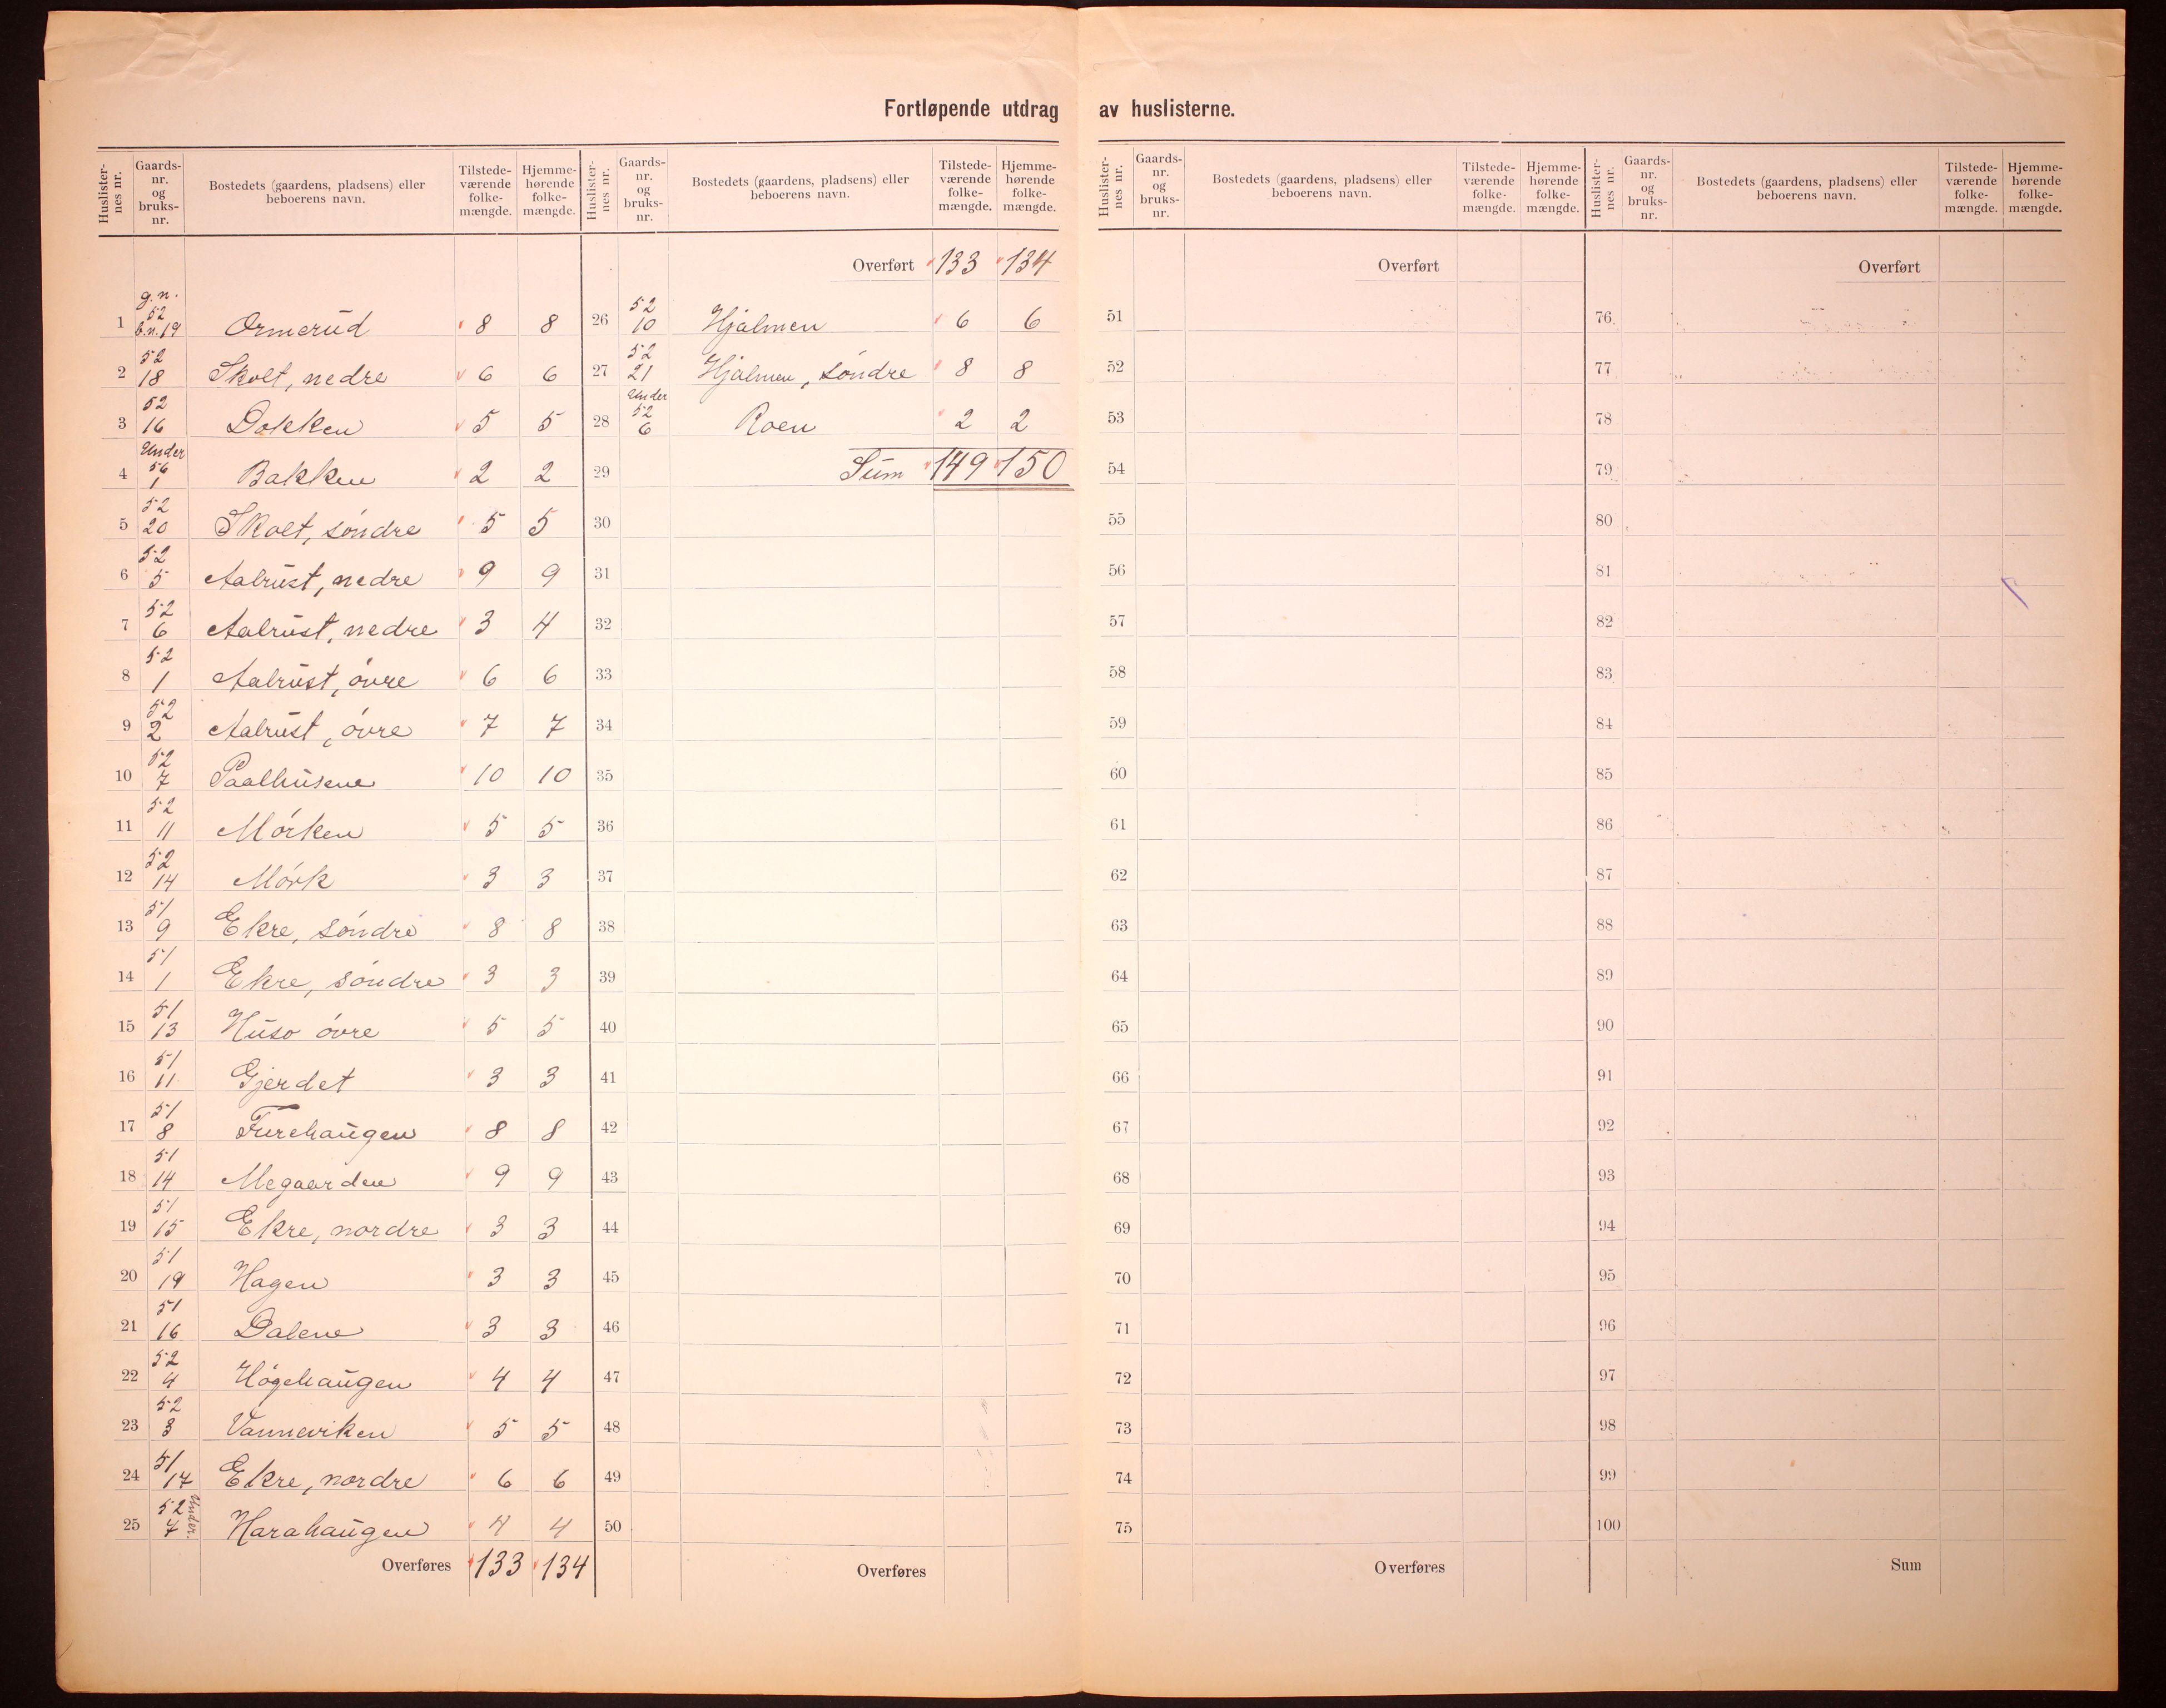 Fortløpende utdrag av huslisterne.
Huslisternes nr. Gaards-nr. og bruks-nr. Bostedets (gaardens, pladsens) eller beboerens navn. Tilstede-værende folke-mængde. Hjemme-hørende folke-mængde.
1 g.n. 52 b.n. 19 Ormerud 8 8
2 52 18 Skolt, nedre 6 6
3 52 16 Dokken 5 5
4 Under 56 1 Bakken 2 2
5 52 20 Skolt, søndre 5 5
6 52 5 Aalrust, nedre 9 9
7 52 6 Aalrust, nedre 3 4
8 52 1 Aalrust, øvre 6 6
9 52 2 Aalrust, øvre 7 7
10 52 7 Paalhusene 10 10
11 52 11 Mørken 5 5
12 52 14 Mørk 3 3
13 51 9 Ekre, søndre 8 8
14 51 1 Ekre, søndre 3 3
15 51 13 Huso øvre 5 5
16 51 11 Gjerdet 3 3
17 51 8 Furehaugen 8 8
18 51 14 Megaarden 9 9
19 51 15 Ekre, nordre 3 3
20 51 19 Hagen 3 3
21 51 16 Dalene 3 3
22 52 4 Høgehaugen 4 4
23 52 3 Vanneviken 5 5
24 51 17 Ekre, nordre 6 6
25 52 7 Under. Harahaugen 4 4
Overføres 133 134
Huslisternes nr. Gaards-nr. og bruks-nr. Bostedets (gaardens, pladsens) eller beboerens navn. Tilstede-værende folke-mængde. Hjemme-hørende folke-mængde.
Overført 133 134
26 52 10 Hjalmen 6 6
27 52 21 Hjalmen, søndre 8 8
28 Under 52 6 Roen 2 2
29 Sum 149 150
30
31
32
33
34
35
36
37
38
39
40
41
42
43
44
45
46
47
48
49
50
Overføres
Huslisternes nr. Gaards-nr. og bruks-nr. Bostedets (gaardens, pladsens) eller beboerens navn. Tilstede-værende folke-mængde. Hjemme-hørende folke-mængde.
Overført
51
52
53
54
55
56
57
58
59
60
61
62
63
64
65
66
67
68
69
70
71
72
73
74
75
Overføres
Huslisternes nr. Gaards-nr. og bruks-nr. Bostedets (gaardens, pladsens) eller beboerens navn. Tilstede-værende folke-mængde. Hjemme-hørende folke-mængde.
Overført
76
77
78
79
80
81
82
83
84
85
86
87
88
89
90
91
92
93
94
95
96
97
98
99
100
Sum